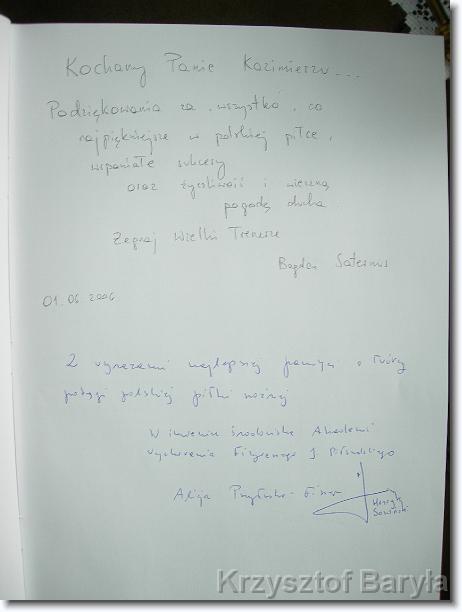 Kochany Panie Kazimierzu...
Podziękowania za wszystko, co
najpiękniejsze w polskiej piłce,
wspaniałe sukcesy
oraz życzliwość i wieczną
pogodę ducha.
Żegnaj Wielki Trenerze
Bogdan Saternus
01.06.2006
Z wyrazami najlepszej pamięci o twórcy
potęgi polskiej piłki nożnej
W imieniu środowiska Akademii
Wychowania Fizycznego J. Piłsudskiego
Alicja
Henryk
Sozański
Krzysztof Baryła